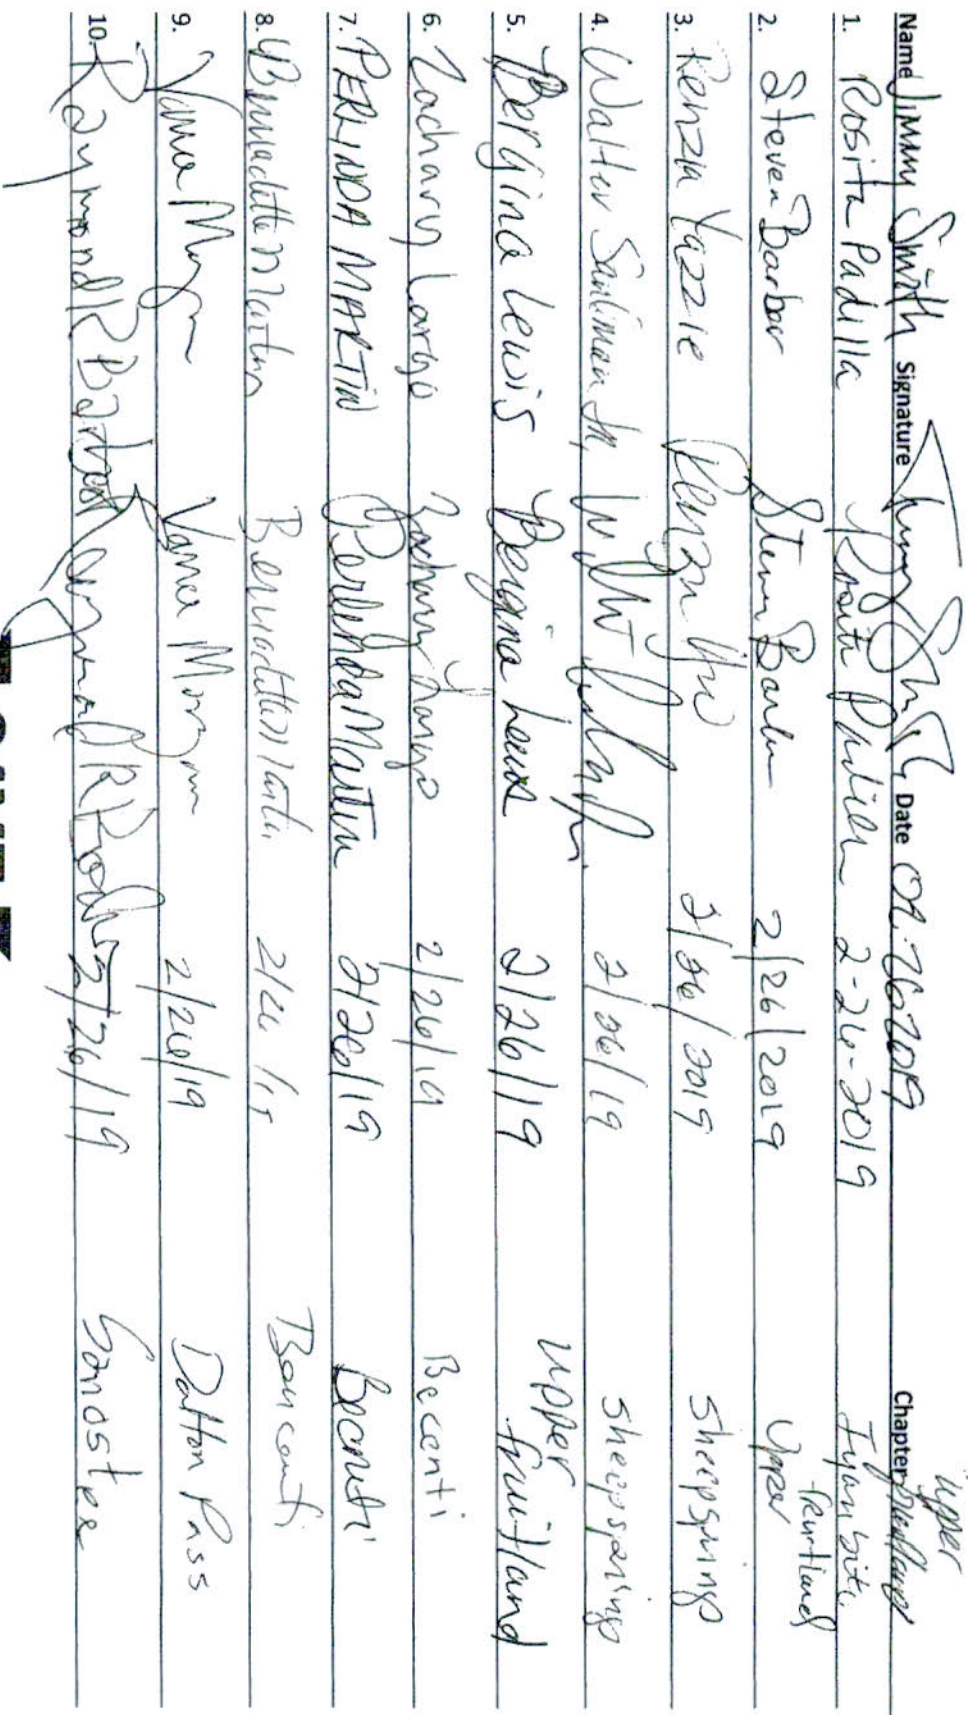 Name Jimmy Smith Signature Jimmy Smith Date 02.26.2019 Chapter Upper Fruitland
1. Rosita Padilla Rosita Padilla 2-26-2019 Iyanbito
2. Steven Barbor Steven Barbor 2/26/2019 Upper Fruitland
3. Renzia Yazzie 2/26/2019 Sheepsprings
4. Walter Jr. 2/26/19 Sheepsprings
5. Bergina Lewis Bergina Lewis 2/26/19 Upper fruitland
6. Zachary Largo Zachary Largo 2/26/19 Becenti
7. PERLINDA MARTIN Perlinda Martin 2/26/19 Becenti
8. Bernadette Martin Bernadette Martin 2/26/19
9. Morgan Morgan 2/26/19 Dalton Pass
10. Raymond R Barber Raymond R 2/26/19 Sanostee